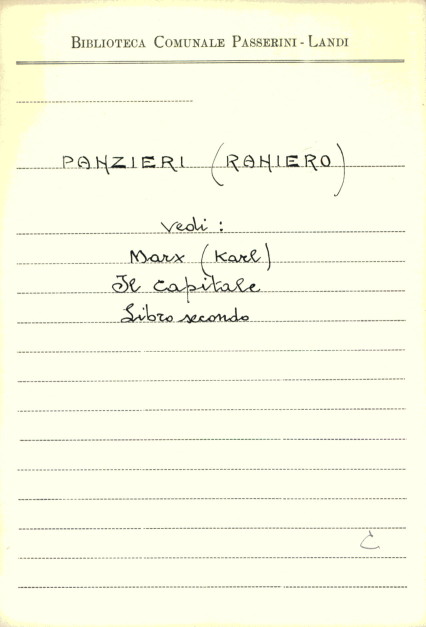 BIBLIOTECA COMUNALE PASSERINI - LANDI
PANZIERI (RANIERO)
Vedi :
Marx (Karl)
Il Capitale
Libro secondo
C